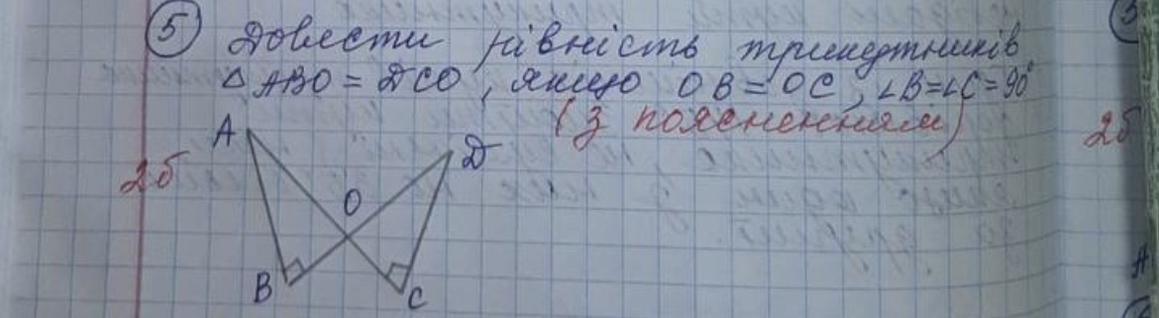 5 Довести рівність трикутників
△ABO = DCO, якщо OB = OC, ∠B=∠C=90°
(з поясненням)
2б
2б
A
D
O
B
C
A